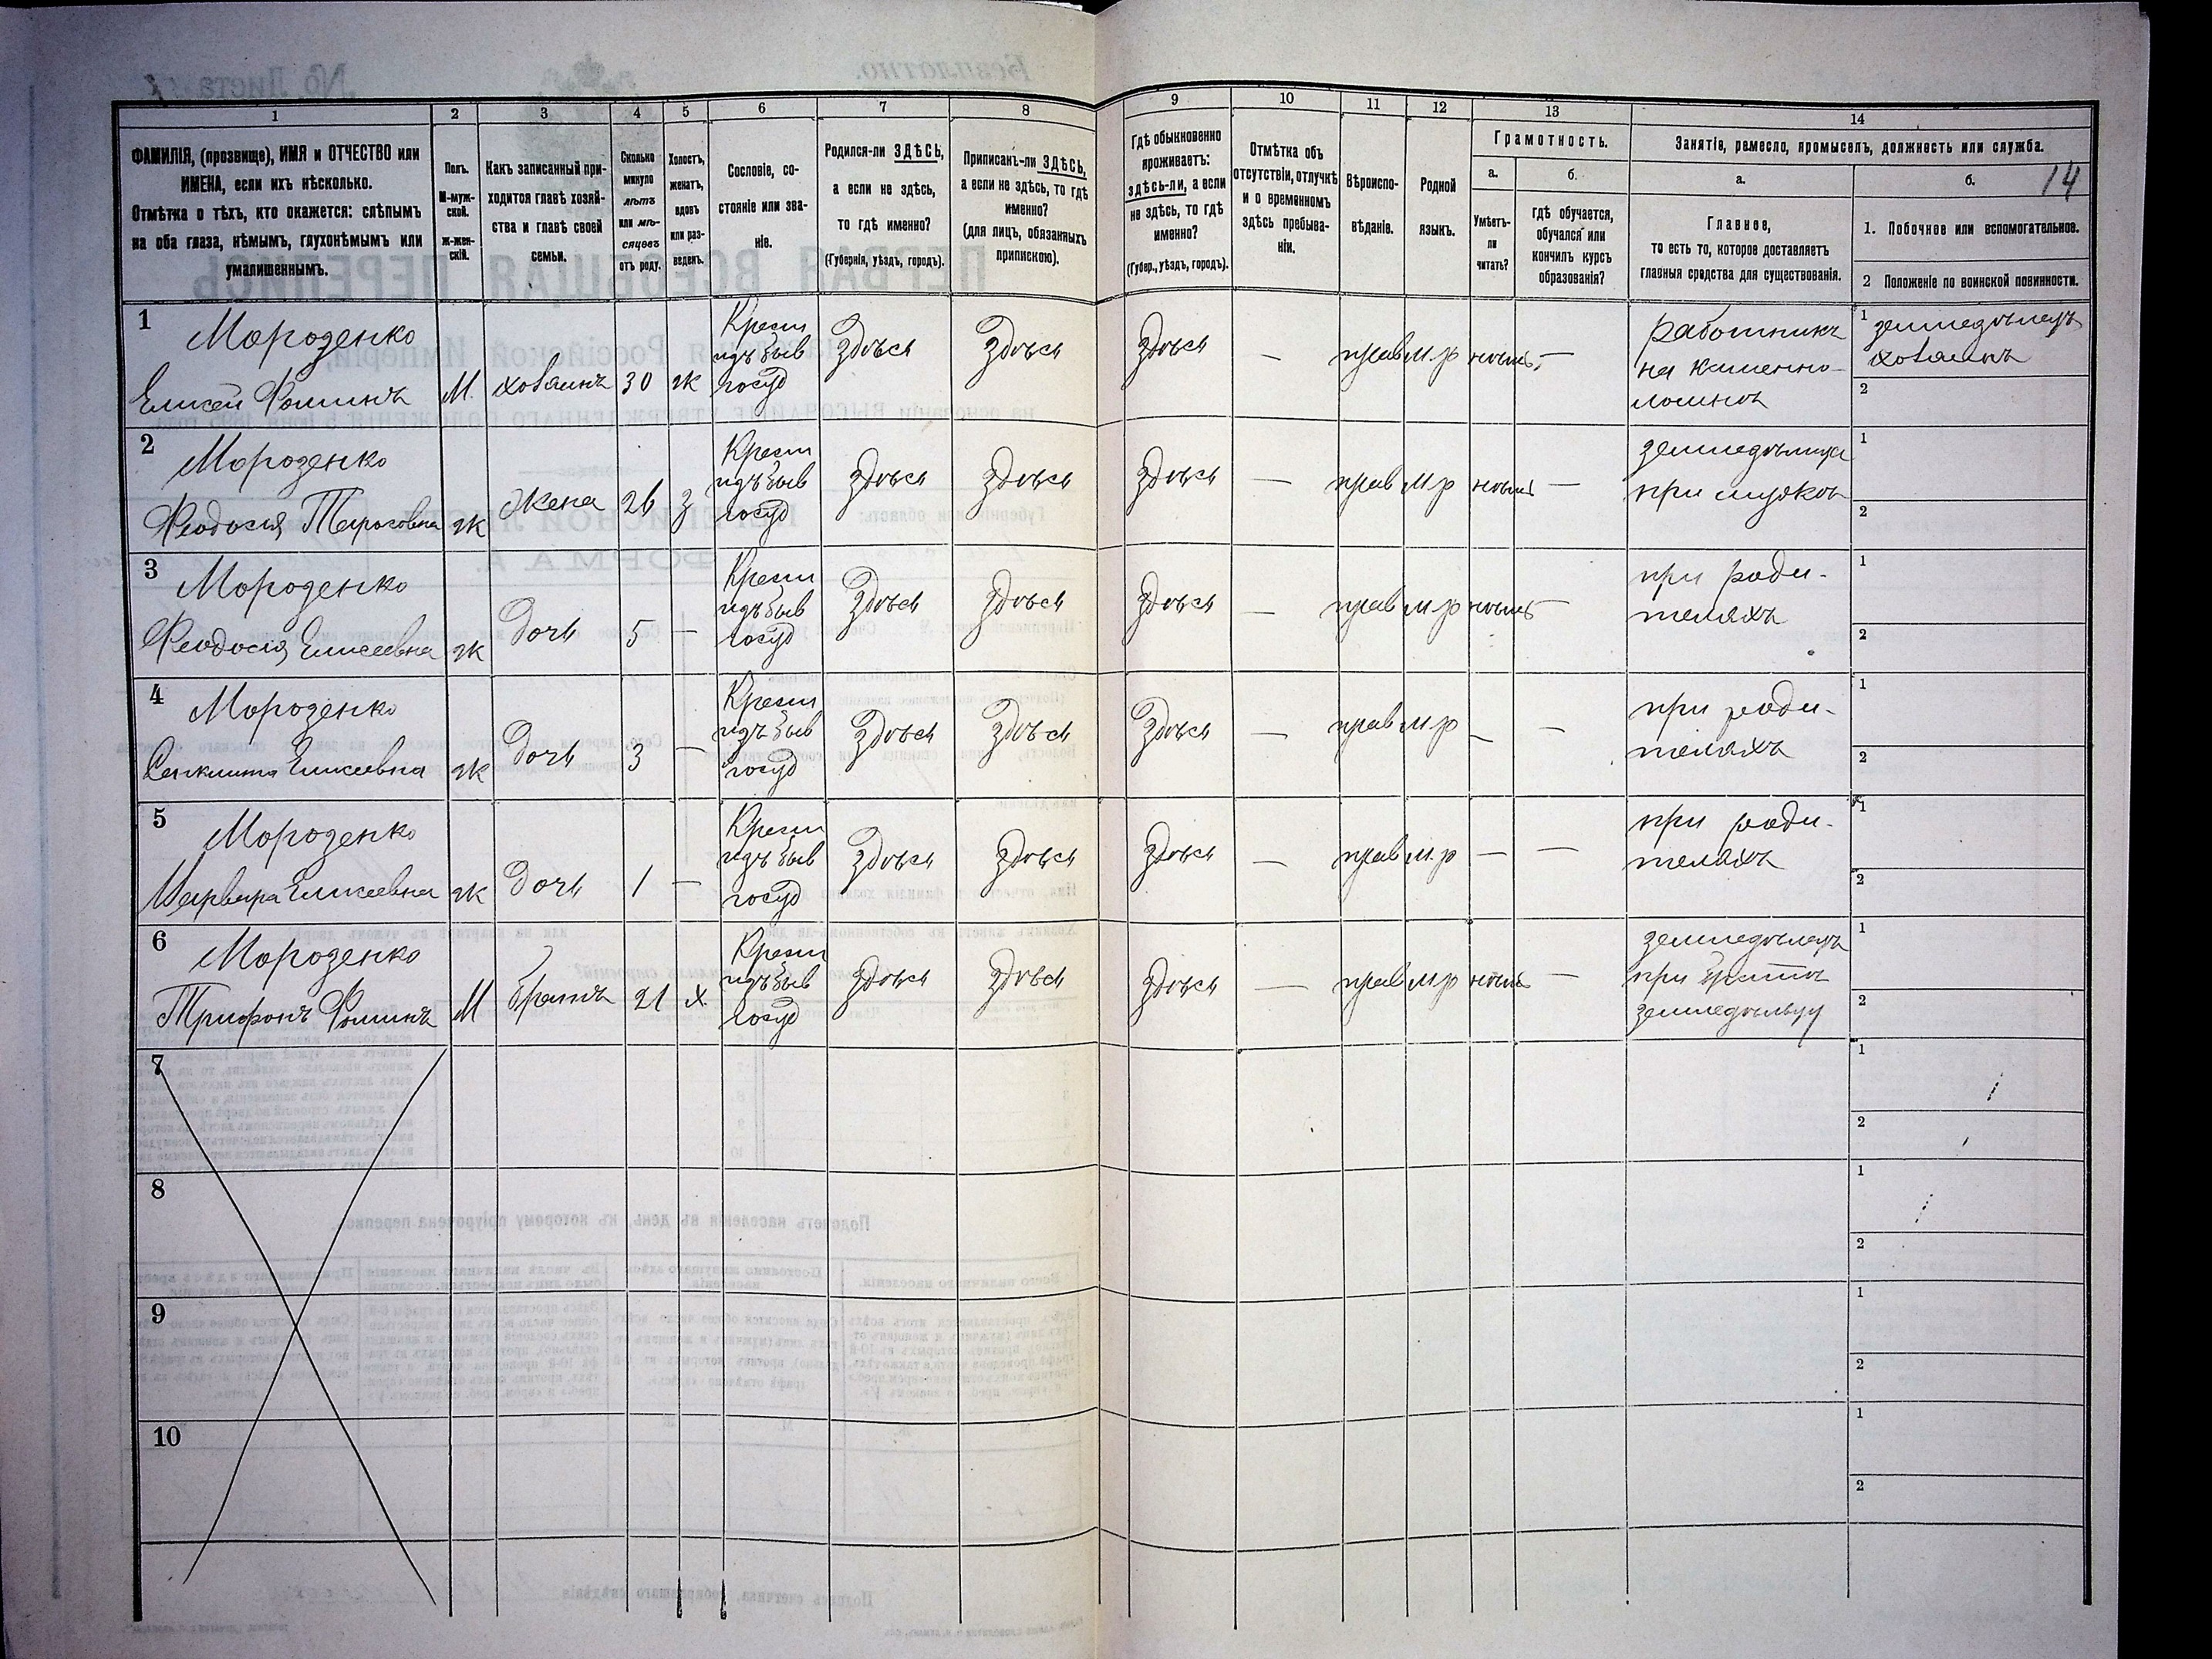 1 2 3 4 5 6 7 8 9 10 11 12 13 14
ФАМИЛІЯ, (прозвище), ИМЯ и ОТЧЕСТВО или
ИМЕНА, если ихъ нѣсколько.
Отмѣтка о тѣхъ, кто окажется: слѣпымъ
на оба глаза, нѣмымъ, глухонѣмымъ или
умалишеннымъ.
Полъ.
М-муж-
ской.
ж-жен-
скій.
Какъ записанный при-
ходится главѣ хозяй-
ства и главѣ своей
семьи.
Сколько
минуло
лѣтъ
или мѣ-
сяцевъ
отъ роду.
Холостъ,
женатъ,
вдовъ
или раз-
веденъ.
Сословіе, со-
стояніе или зва-
ніе.
Родился-ли ЗДѢСЬ,
а если не здѣсь,
то гдѣ именно?
(Губернія, уѣздъ, городъ).
Приписанъ-ли ЗДѢСЬ,
а если не здѣсь, то гдѣ
именно?
(для лицъ, обязанныхъ
припискою).
Гдѣ обыкновенно
проживаетъ:
здѣсь-ли, а если
не здѣсь, то гдѣ
именно?
(Губер., уѣздъ, городъ).
Отмѣтка объ
отсутствіи, отлучкѣ
и о временномъ
здѣсь пребыва-
ніи.
Вѣроиспо-
вѣданіе.
Родной
языкъ.
Грамотность.
а.
Умѣетъ-
ли
читать?
б.
гдѣ обучается,
обучался или
кончилъ курсъ
образованія?
Занятіе, ремесло, промыселъ, должность или служба.
а.
Главное,
то есть то, которое доставляетъ
главныя средства для существованія.
б.
14
1. Побочное или вспомогательное.
2 Положеніе по воинской повинности.
1
Мороzенко
Елисей Фоминъ
М.
хозяинъ
30
ж
Крест
изъ быв
госуд
Здѣсь
Здѣсь
Здѣсь
—
прав
м.р
нѣтъ
—
работникъ
на каменно-
ломнѣ
1 земледѣлецъ
хозяинъ
2
2
Мороzенко
Феодосія Тарасовна
ж
Жена
26
з
Крест
изъ быв
госуд
Здѣсь
Здѣсь
Здѣсь
—
прав
м р
нѣтъ
—
земледѣлица
при мужѣ
1
2
3
Мороzенко
Феодосія Елисеевна
ж
Дочь
5
—
Крест
изъ быв
госуд
Здѣсь
Здѣсь
Здѣсь
—
прав
м р
нѣтъ
—
при роди-
теляхъ
1
2
4
Мороzенко
Елисеевна
ж
Дочь
3
—
Крест
изъ быв
госуд
Здѣсь
Здѣсь
Здѣсь
—
прав
м.р
—
—
при роди-
теляхъ
1
2
5
Мороzенко
Варвара Елисеевна
ж
Дочь
1
—
Крест
изъ быв
госуд
Здѣсь
Здѣсь
Здѣсь
—
прав
м.р
—
—
при роди-
теляхъ
1
2
6
Мороzенко
Трифонъ Фоминъ
М
братъ
21
х.
Крест
изъ быв
госуд
Здѣсь
Здѣсь
Здѣсь
—
прав
м р
нѣтъ
—
земледѣлецъ
при братѣ
земледѣльцѣ
1
2
7
1
2
8
1
2
9
1
2
10
1
2